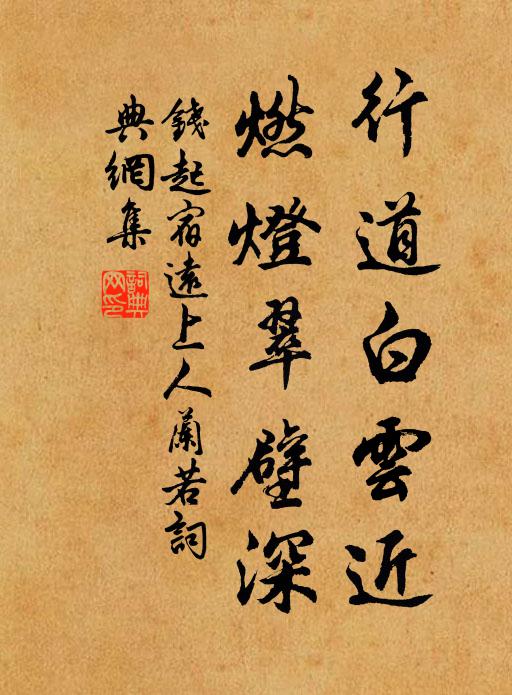 行道白雲近
燃燈翠壁深
錢起宿遠上人蘭若詞
典網集
詞典
网印